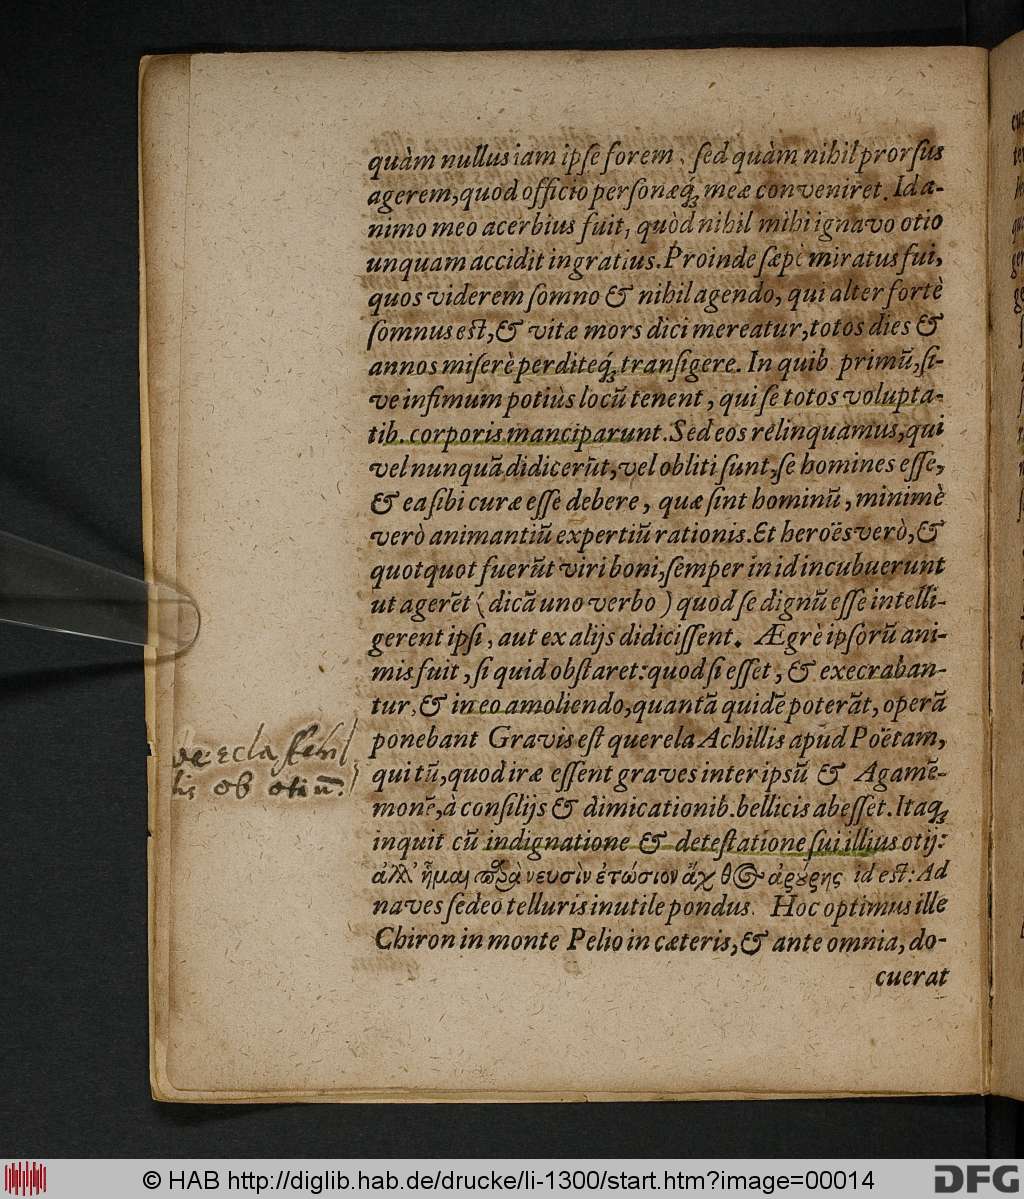 quàm nullus iam ipse forem, sed quàm nihil prorsus
agerem, quod officio personæq́ꝫ meæ conveniret. Id a-
nimo meo acerbius fuit, quòd nihil mihi ignavo otio
unquam accidit ingratius. Proinde sæpè miratus fui,
quos viderem somno & nihil agendo, qui alter fortè
somnus est, & vitæ mors dici mereatur, totos dies &
annos miserè perditeq́ꝫ transigere. In quib primũ, si-
ve infimum potiùs locũ tenent, qui se totos volupta-
tib. corporis manciparunt. Sed eos relinquamus, qui
vel nunquã didicerũt, vel obliti sunt, se homines esse,
& ea sibi curæ esse debere, quæ sint hominũ, minimè
verò animantiũ expertiũ rationis. Et heroës verò, &
quotquot fuerũt viri boni, semper in id incubuerunt
ut agerẽt (dicã uno verbo) quod se dignũ esse intelli-
gerent ipsi, aut ex alijs didicissent. Ægrè ipsorũ ani-
mis fuit, si quid obstaret: quod si esset, & execraban-
tur, & in eo amoliendo, quantã quidẽ poterãt, operã
ponebant Gravis est querela Achillis apud Poëtam,
qui tũ, quod iræ essent graves inter ipsũ & Agamẽ-
monẽ, à consilijs & dimicationib. bellicis abesset. Itaqꝫ
inquit cũ indignatione & detestatione sui illius otij:
ἀλλ' ἧμαι παρὰ νευσὶν ἐτώσιον ἄχθος ἀρούρης id est: Ad
naves sedeo telluris inutile pondus. Hoc optimus ille
Chiron in monte Pelio in cæteris, & ante omnia, do-
cuerat
lis ob otiũ.
© HAB http://diglib.hab.de/drucke/li-1300/start.htm?image=00014
DFG